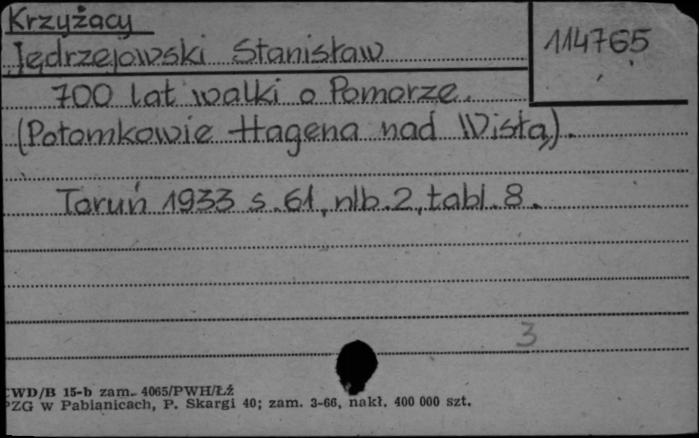 Krzyżacy
Jędrzejowski Stanisław
114765
700 lat walki o Pomorze.
(Potomkowie Hagena nad Wisłą).
Toruń 1933 s. 61, nlb. 2, tabl. 8.
3
CWD/B 15-b zam. 4065/PWH/Łź
PZG w Pabianicach, P. Skargi 40; zam. 3-66, nakł. 400 000 szt.